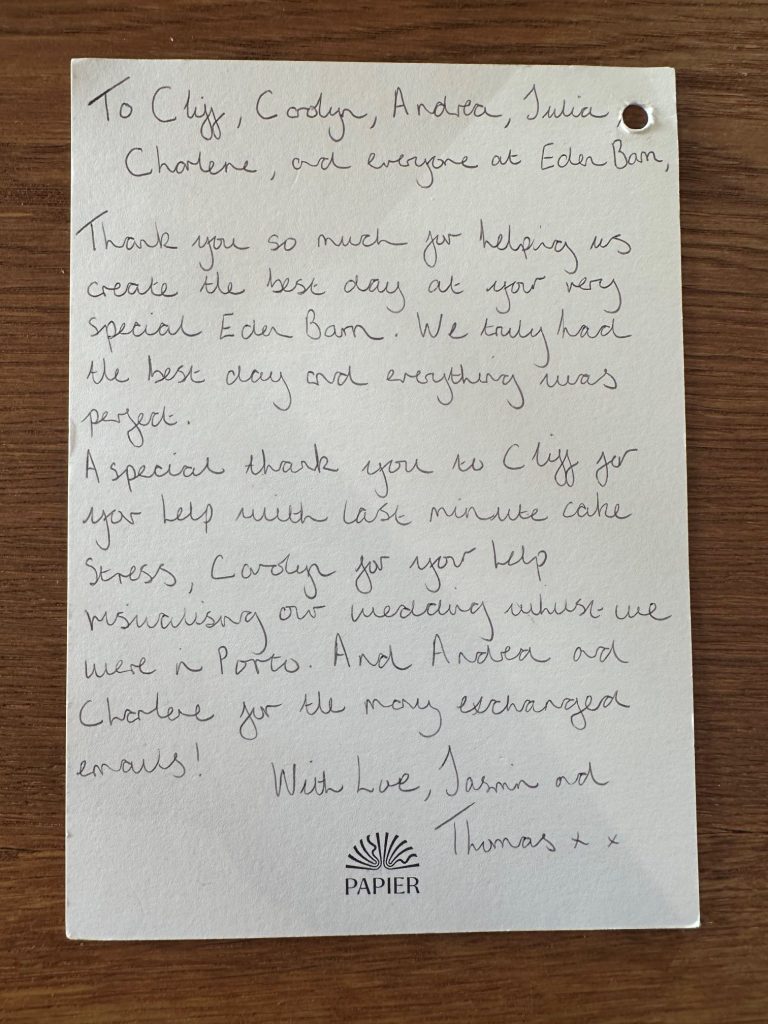 To Cliff, Carolyn, Andrea, Julia,
Charlene, and everyone at Eden Barn,
Thank you so much for helping us
create the best day at your very
special Eden Barn. We truly had
the best day and everything was
perfect.
A special thank you to Cliff for
your help with last minute cake
stress, Carolyn for your help
visualising our wedding whilst we
were in Porto. And Andrea and
Charlene for the many exchanged
emails!
With Love, Jasmin and
Thomas x x
PAPIER